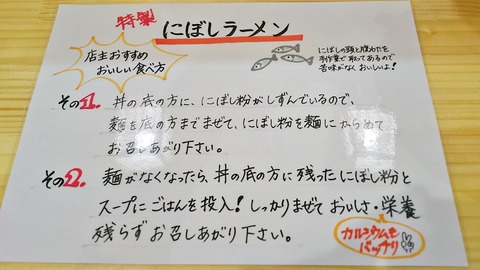 特製 にぼしラーメン
店主おすすめ
おいしい食べ方
にぼしの頭と腹わたを
手作業で取ってあるので
苦味がなくおいしいよ!
その1. 丼の底の方に、にぼし粉がしずんでいるので、
麺を底の方までまぜて、にぼし粉を麺にからめて
お召しあがり下さい。
その2. 麺がなくなったら、丼の底の方に残ったにぼし粉と
スープにごはんを投入!しっかりまぜておいしさ・栄養
残らずお召しあがり下さい。
カルシウムも
バッチリ